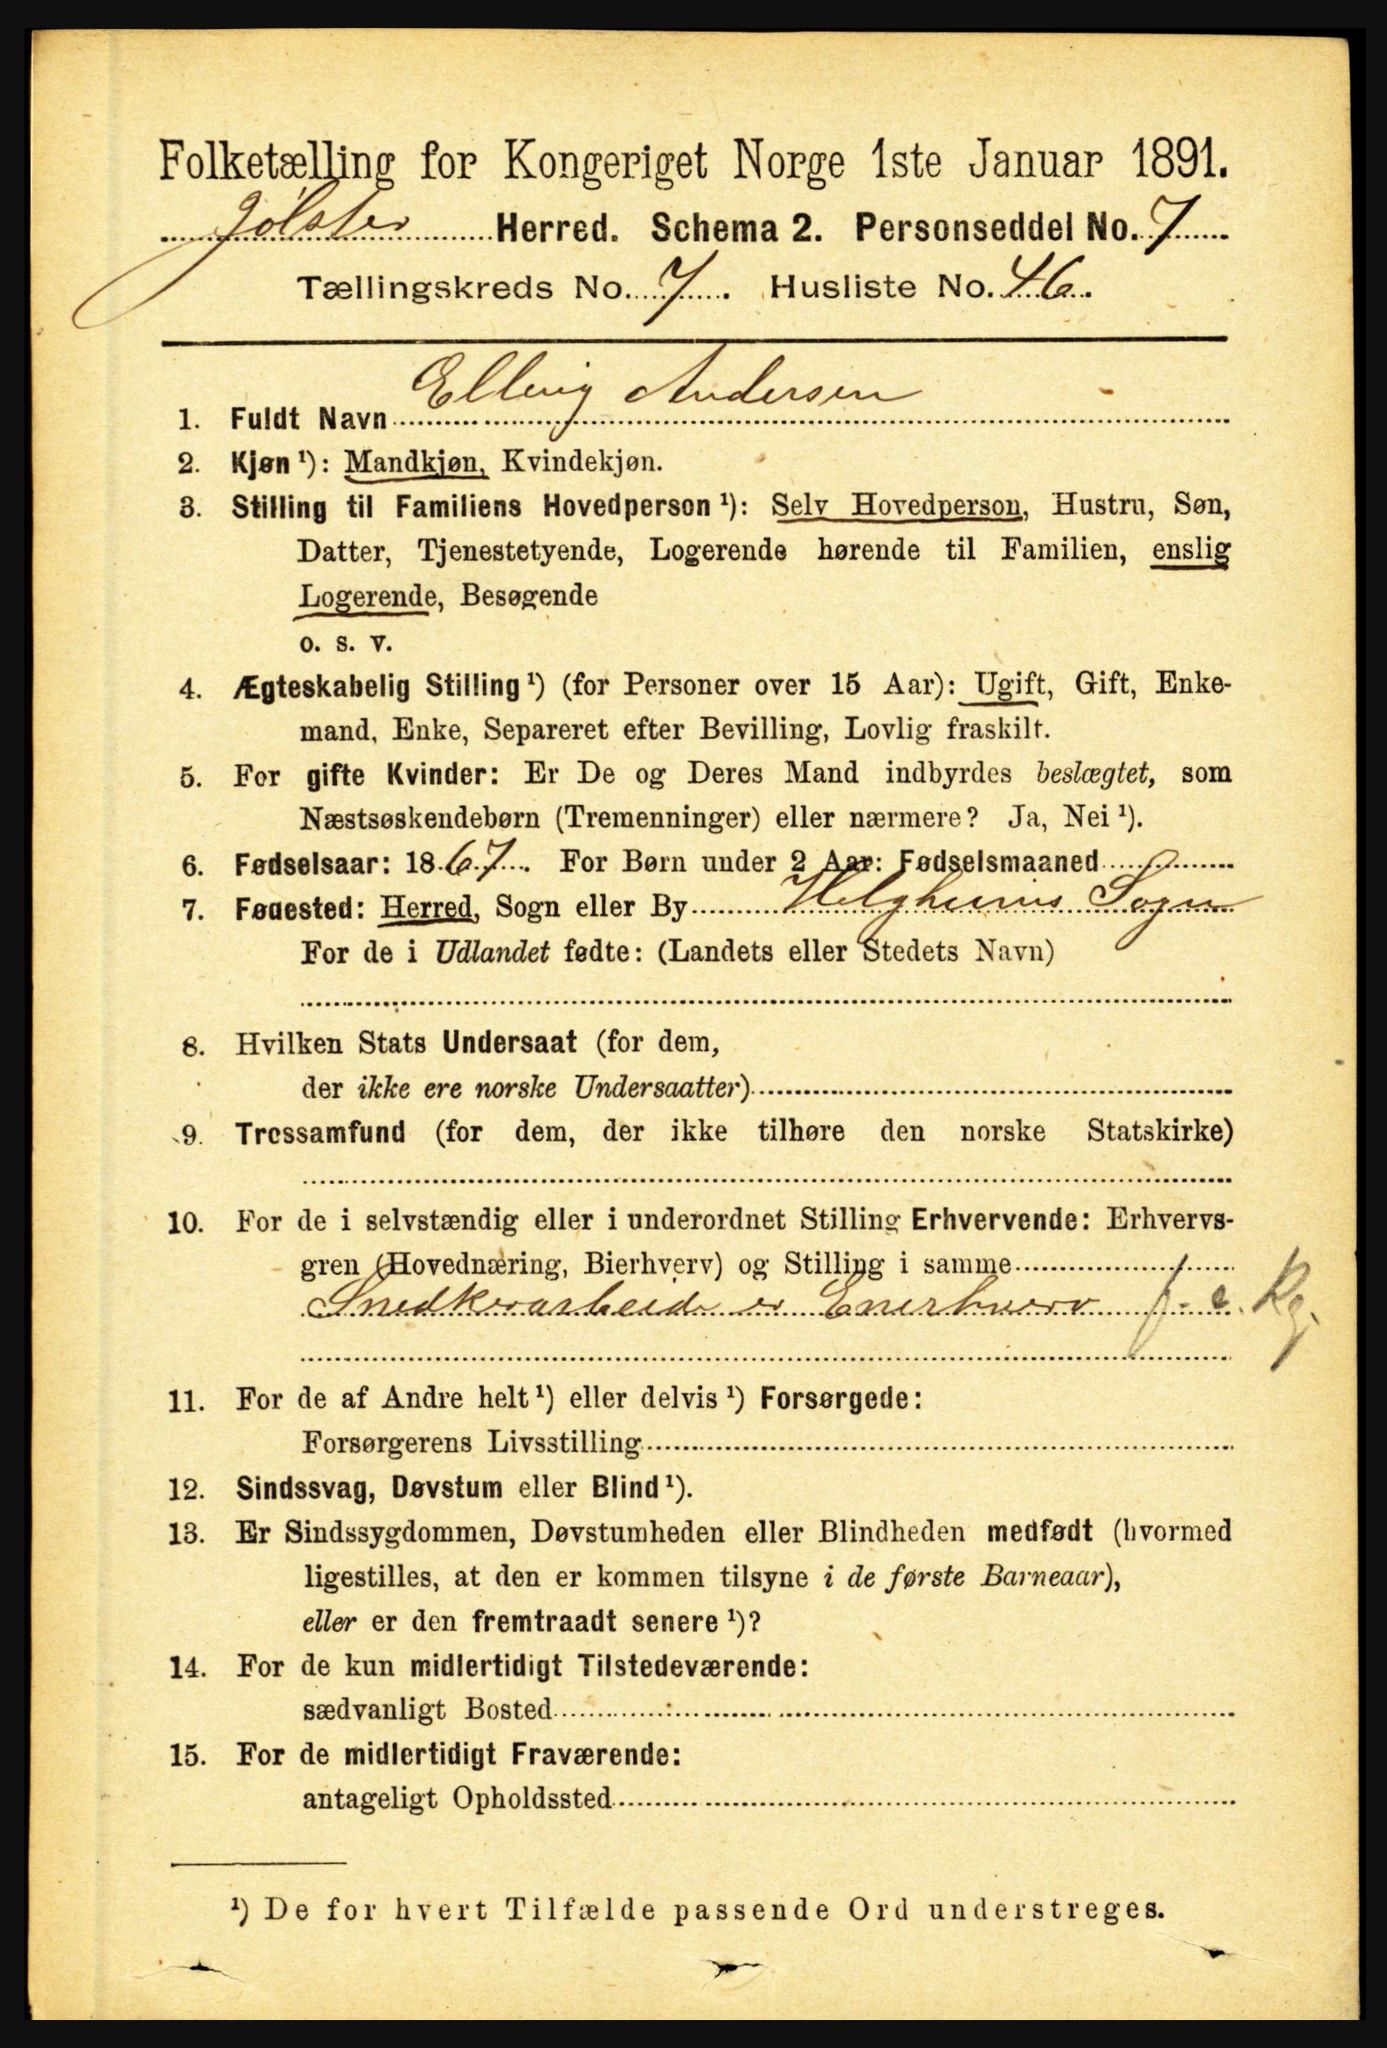 Folketælling for Kongeriget Norge 1ste Januar 1891.
Jölster Herred. Schema 2. Personseddel No. 7
Tællingskreds No. 7. Husliste No. 46.
1. Fuldt Navn Elling Andersen
2. Kjøn ¹): Mandkjøn, Kvindekjøn.
3. Stilling til Familiens Hovedperson ¹): Selv Hovedperson, Hustru, Søn,
Datter, Tjenestetyende, Logerende hørende til Familien, enslig
Logerende, Besøgende
o. s. v.
4. Ægteskabelig Stilling ¹) (for Personer over 15 Aar): Ugift, Gift, Enke-
mand, Enke, Separeret efter Bevilling, Lovlig fraskilt.
5. For gifte Kvinder: Er De og Deres Mand indbyrdes beslægtet, som
Næstsøskendebørn (Tremenninger) eller nærmere? Ja, Nei ¹).
6. Fødselsaar: 1867. For Børn under 2 Aar: Fødselsmaaned
7. Fødested: Herred, Sogn eller By Helgheims Sogn
For de i Udlandet fødte: (Landets eller Stedets Navn)
8. Hvilken Stats Undersaat (for dem,
der ikke ere norske Undersaatter)
9. Trossamfund (for dem, der ikke tilhøre den norske Statskirke)
10. For de i selvstændig eller i underordnet Stilling Erhvervende: Erhvervs-
gren (Hovednæring, Bierhverv) og Stilling i samme
Snedkerarbeide er Enerhverv f. e. Rg.
11. For de af Andre helt ¹) eller delvis ¹) Forsørgede:
Forsørgerens Livsstilling
12. Sindssvag, Døvstum eller Blind ¹).
13. Er Sindssygdommen, Døvstumheden eller Blindheden medfødt (hvormed
ligestilles, at den er kommen tilsyne i de første Barneaar),
eller er den fremtraadt senere ¹)?
14. For de kun midlertidigt Tilstedeværende:
sædvanligt Bosted
15. For de midlertidigt Fraværende:
antageligt Opholdssted
¹) De for hvert Tilfælde passende Ord understreges.